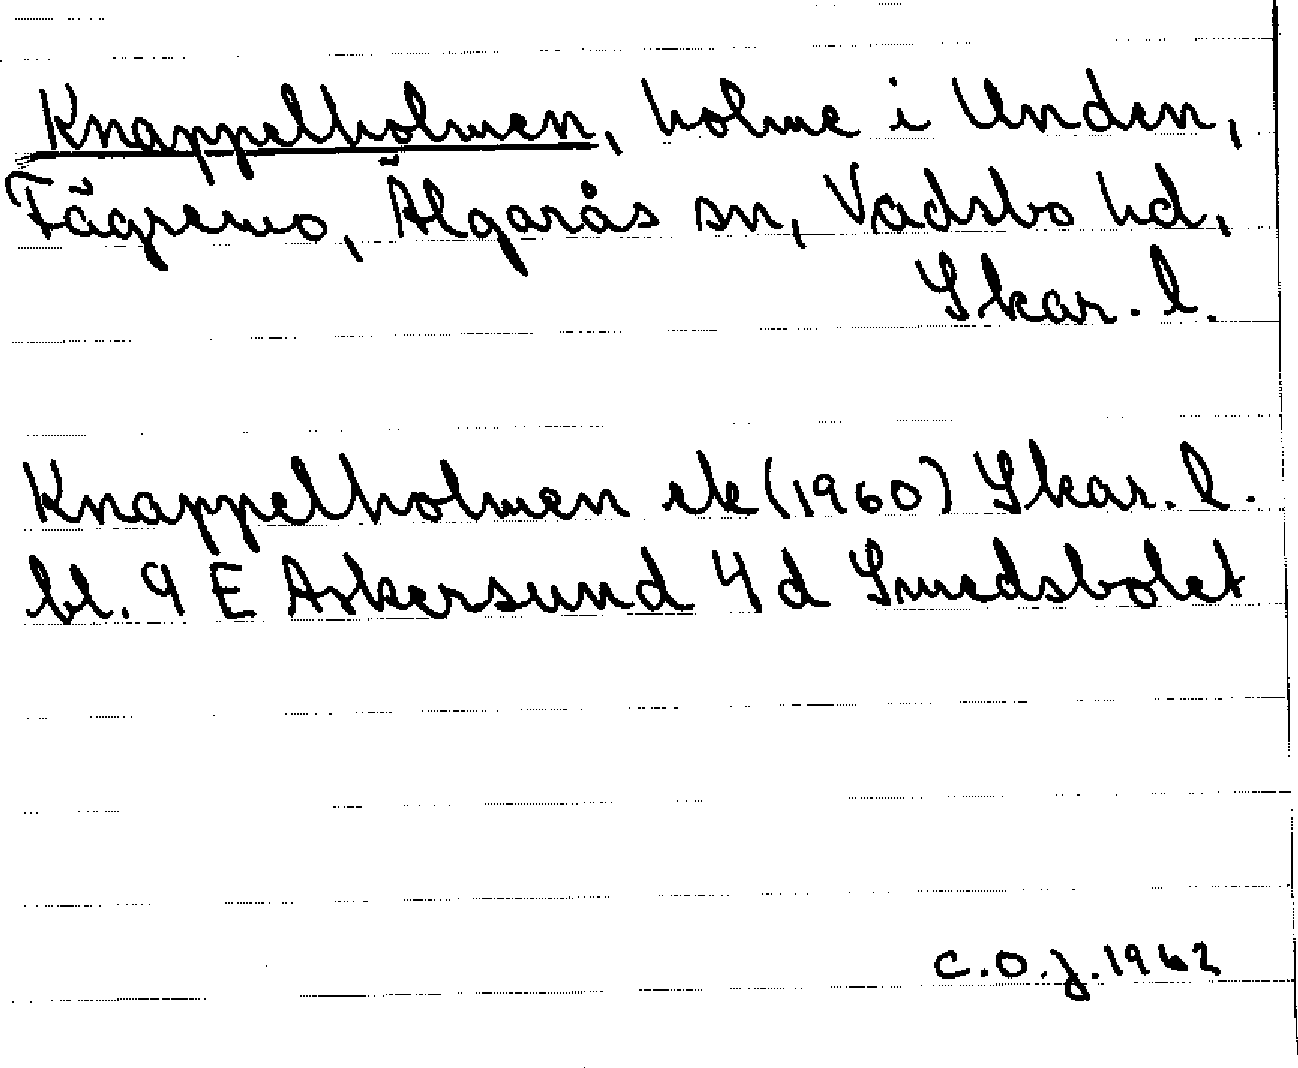 Knappelholmen, holme i Unden,
Fägremo, Älgarås sn, Vadsbo hd,
Skar. l.
Knappelholmen ek (1960) Skar. l.
bl. 9 E Askersund 4 d Smedsbolet
C.O.J. 1962